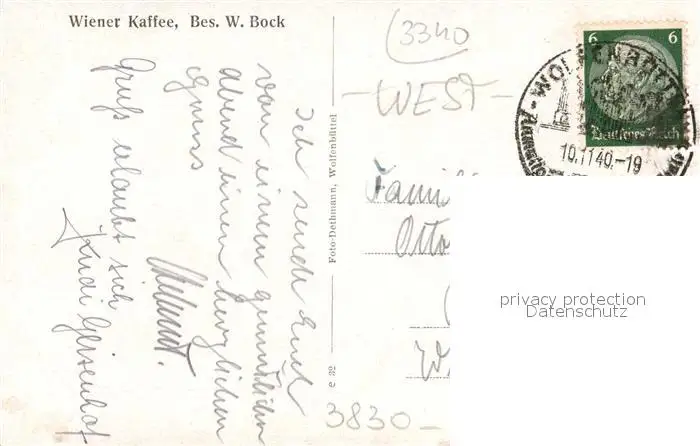 Wiener Kaffee, Bes. W. Bock
(3340)
6 6
Deutsches Reich
WOLFENBÜTTEL
10.11.40.-19
-WEST-
Ich sende Euch
von einem gemütlichen
abend einen herzlichen
Gruss
Helmut.
Gruß erlaubt sich
Rudi
Foto-Dethmann, Wolfenbüttel
c 32
Famil
Otto
W
3830-
privacy protection
Datenschutz